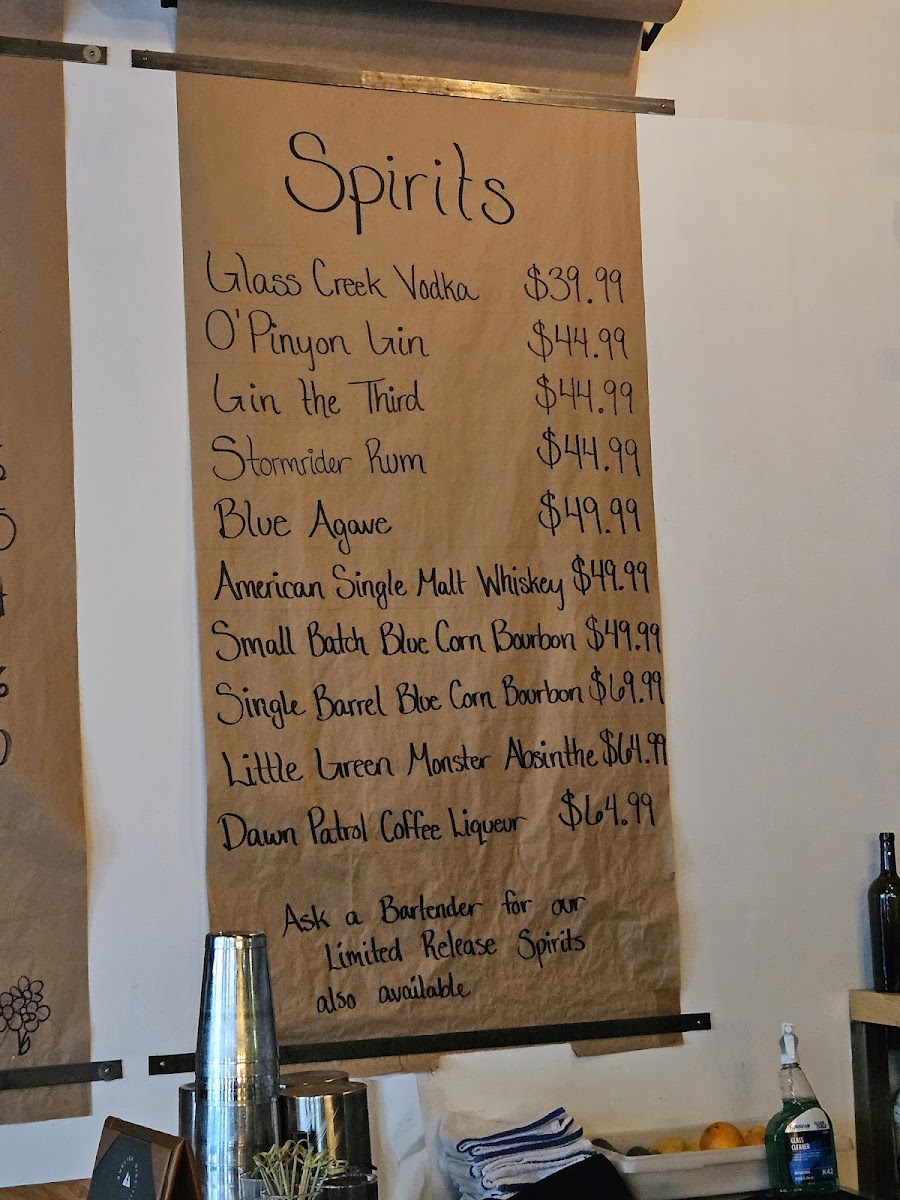 Spirits
Glass Creek Vodka $39.99
O'Pinyon Gin $44.99
Gin the Third $44.99
Stormrider Rum $44.99
Blue Agave $49.99
American Single Malt Whiskey $49.99
Small Batch Blue Corn Bourbon $49.99
Single Barrel Blue Corn Bourbon $69.99
Little Green Monster Absinthe $64.99
Dawn Patrol Coffee Liqueur $64.99
Ask a Bartender for our
Limited Release Spirits
also available
GLASS
CLEANER
K42